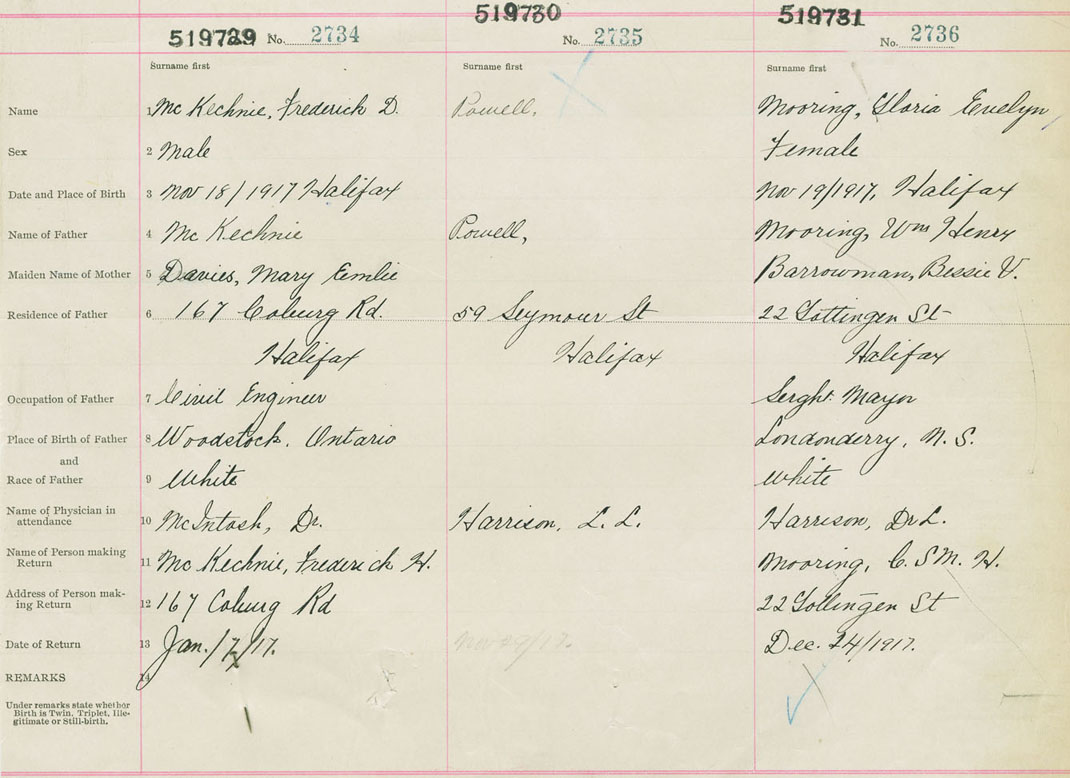 519729 No. 2734 519730 No. 2735 519731 No. 2736
Surname first Surname first Surname first
Name 1 McKechnie, Frederick D. Powell, Mooring, Gloria Evelyn
Sex 2 Male Female
Date and Place of Birth 3 Nov 18/1917 Halifax Nov 19/1917, Halifax
Name of Father 4 McKechnie Powell, Mooring, Wm Henry
Maiden Name of Mother 5 Davies, Mary Emlie Barrowman, Bessie V.
Residence of Father 6 167 Coburg Rd. 59 Seymour St 22 Gottingen St
Halifax Halifax Halifax
Occupation of Father 7 Civil Engineer Serght. Mayor
Place of Birth of Father 8 Woodstock. Ontario Londonderry, N.S.
and
Race of Father 9 White White
Name of Physician in
attendance 10 McIntosh, Dr. Harrison, L. L. Harrison, Dr L.
Name of Person making
Return 11 McKechnie, Frederick H. Mooring, C. S M. H.
Address of Person mak-
ing Return 12 167 Coburg Rd 22 Gottingen St
Date of Return 13 Jan./7/17. Nov 29/17. Dec. 24/1917.
REMARKS 14
Under remarks state whether
Birth is Twin, Triplet, Ille-
gitimate or Still-birth.